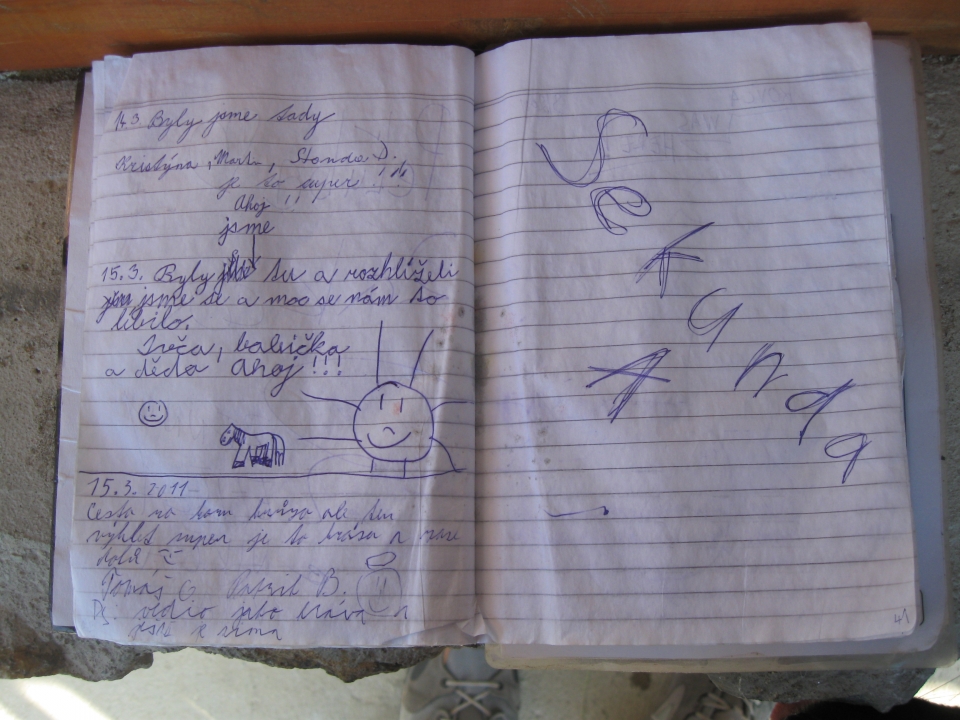 14.3 Byly jsme tady
Kristýna, Martin, Standa D.
je to super !!!
Ahoj !!
jsme
15.3. Byly tu a rozhlíželi
jsme se a moc se nám to
líbilo.
Ivča, babička
a děda Ahoj !!!
15.3. 2011
Cesta na horu hrůza ale ten
výhled super je to krása a
Tomáš C. Patrik B.
vedro jako kráva a
zima
Sekunda
A
41